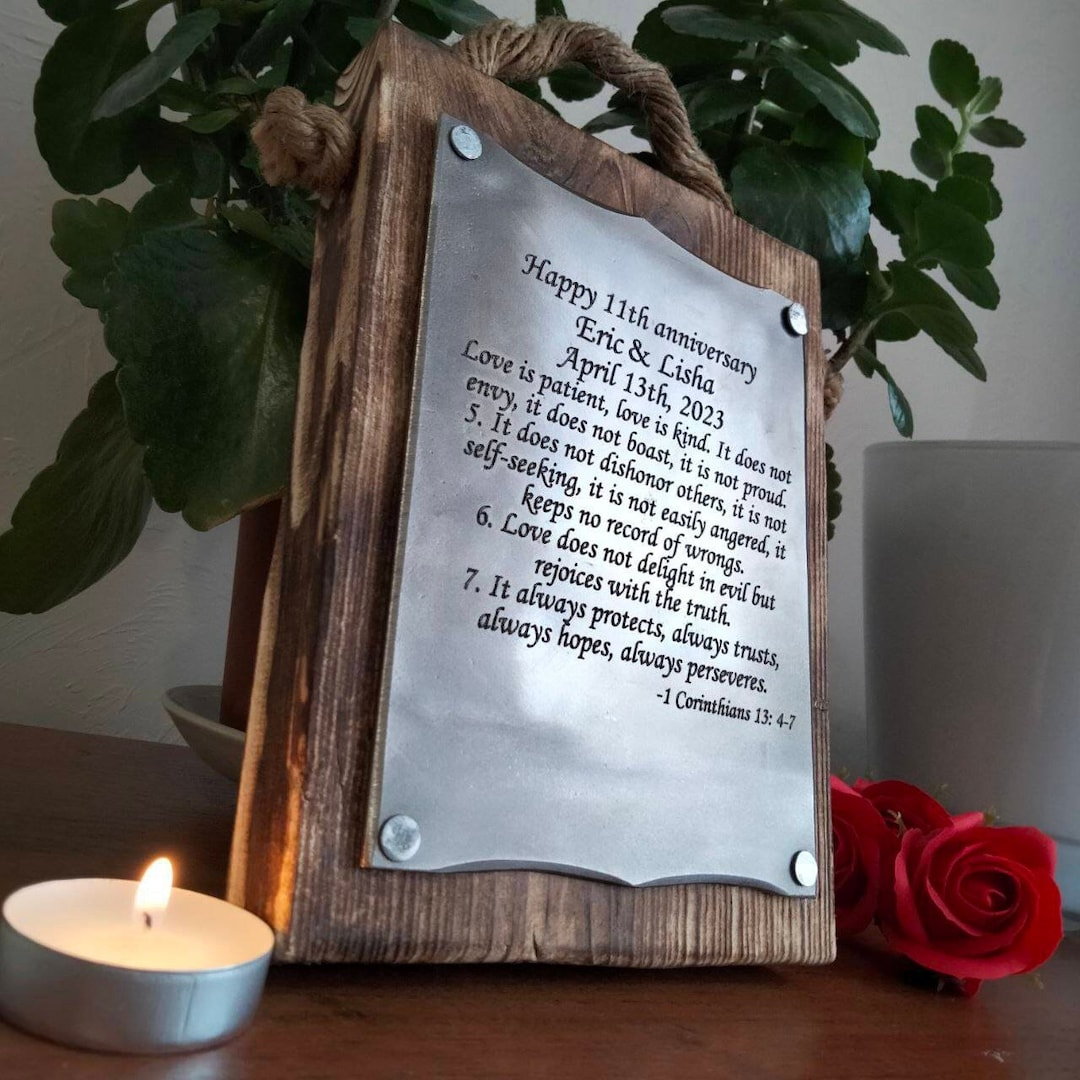 Happy 11th anniversary
Eric & Lisha
April 13th, 2023
Love is patient, love is kind. It does not
envy, it does not boast, it is not proud.
5. It does not dishonor others, it is not
self-seeking, it is not easily angered, it
keeps no record of wrongs.
6. Love does not delight in evil but
rejoices with the truth.
7. It always protects, always trusts,
always hopes, always perseveres.
-1 Corinthians 13: 4-7